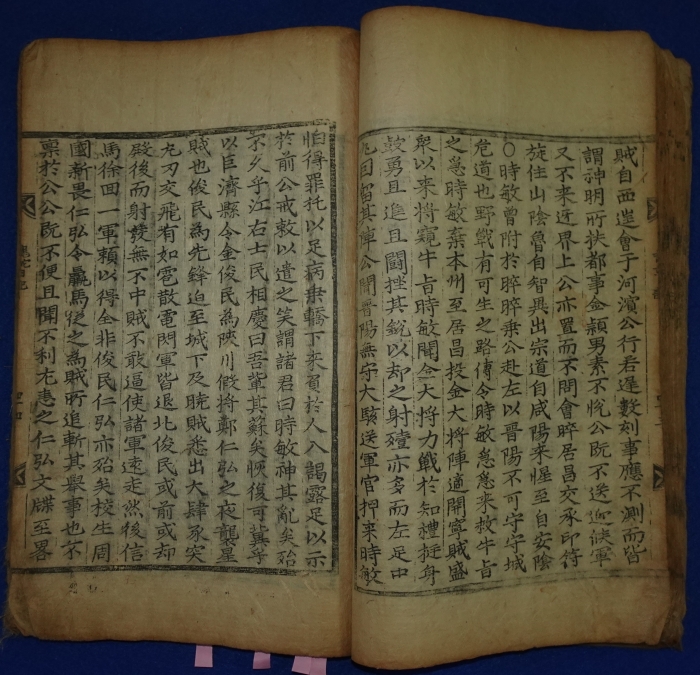 賊自西遮會于河濱公行若遲數刻事應不測而皆
謂神明所扶都事金穎男素不悅公旣不送迎狹軍
又不來近界上公亦置而不問會晬居昌交承印符
旋住山陰魯自智異出宗道自咸陽來惺至自安陰
○時敏曾附於晬晬棄公赴左以晋陽不可守守城
危道也野戰有可生之路傳令時敏急急來救牛旨
之急時敏棄本州至居昌投金大將陣適聞寧賊盛
衆以來將窺牛旨時敏聞金大將力戰於知禮挺身
鼓勇且追且鬪挫其銳以却之射殪亦多而左足中
丸曰留其陣公聞晋陽無守大駭送軍官押來時敏
怕得罪托以足病乗轎下來頁於人入謁露足以示
於前公戒敕以遣之笑謂諸君曰時敏神其亂矣殆
不久乎江右士民相慶曰吾軰其蘇矣恢復可冀乎
以巨濟縣令金俊民為陜川假將鄭仁弘之夜襲星
賊也俊民為先鋒迫至城下及曉賊悉出大肆豕突
尤刃交飛有如雹散電閃軍皆退北俊民或前或却
殿後而射發無不中賊不敢逼使諸軍速走然後信
馬徐回一軍賴以得全非俊民仁弘亦殆矣校生周
國新畏仁弘令羸馬從之為賊所追斬其擧事也不
稟於公公旣不便且聞不利尤恚之仁弘文牒至畧